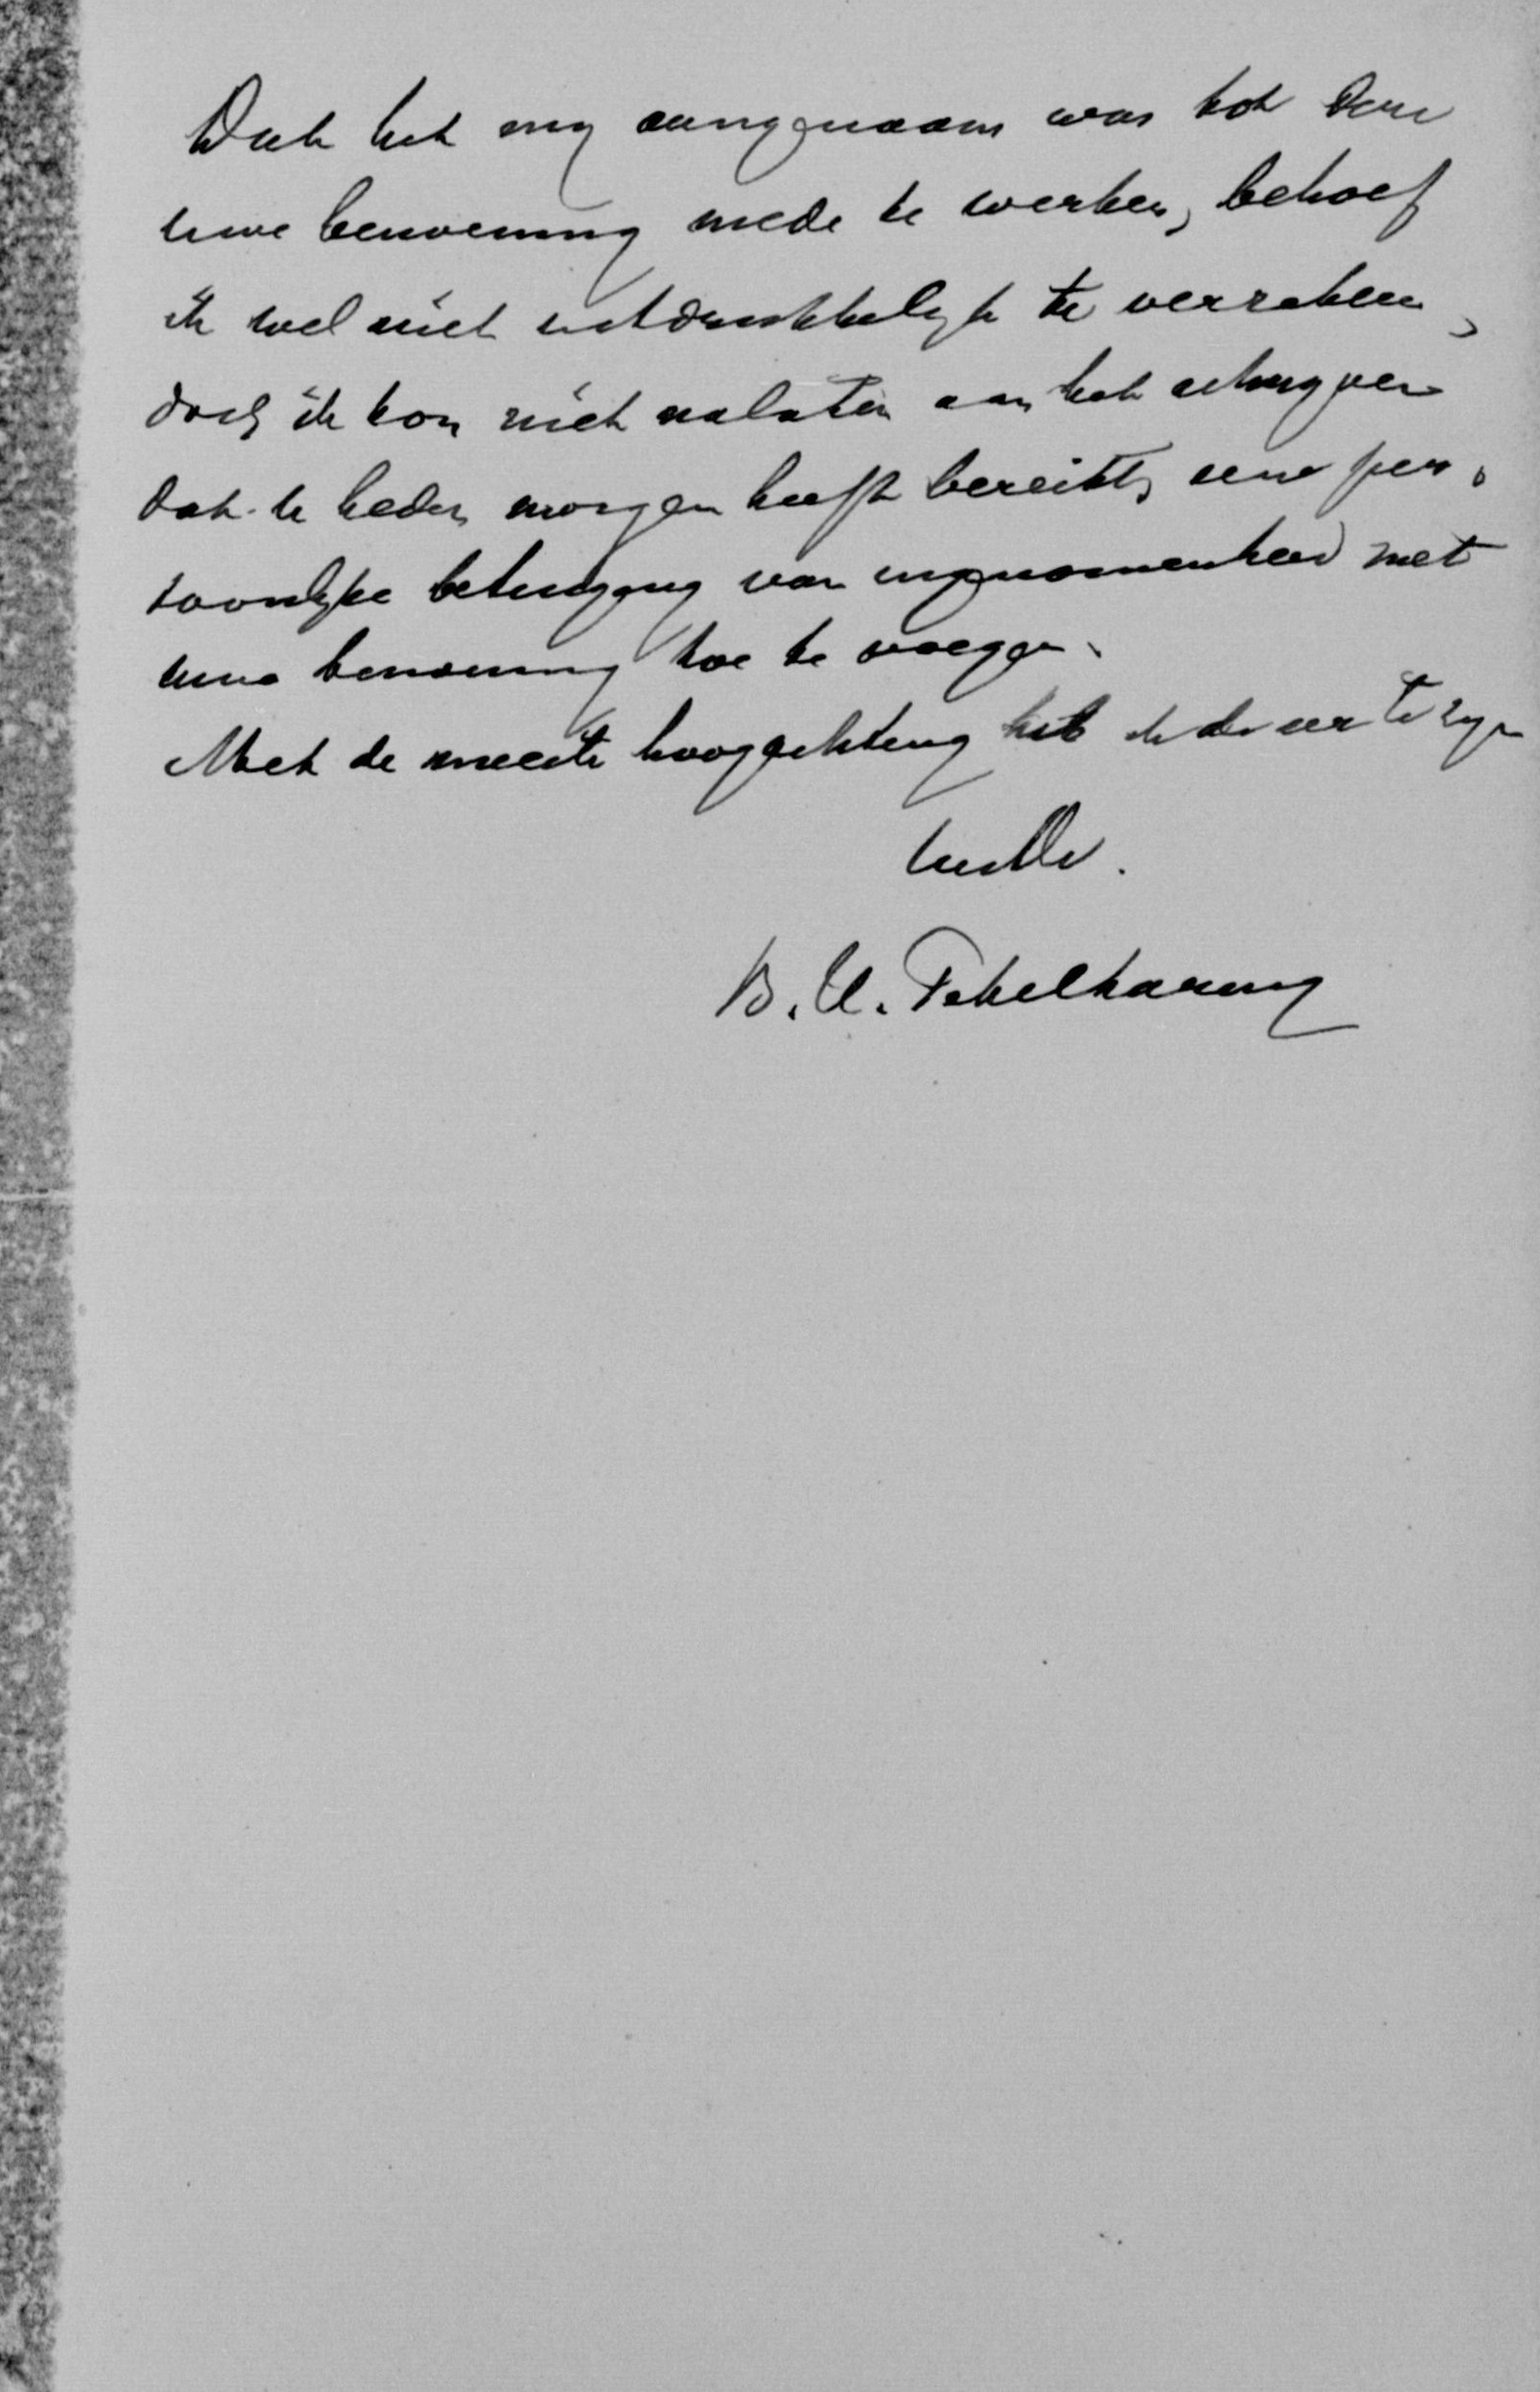 Dat het mij aangenaam was tot deze
uwe benoeming mede te werken, behoef
ik wel niet uitdrukkelijk te verzekeren,
doch ik kon niet nalaten aan het schrijven
dat U heden morgen heeft bereikt, eene per-
soonlijke betuiging van ingenomenheid met
uwe benoeming toe te voegen.
Met de meeste hoogachting heb ik de eer te zijn
B. H. Pekelharing